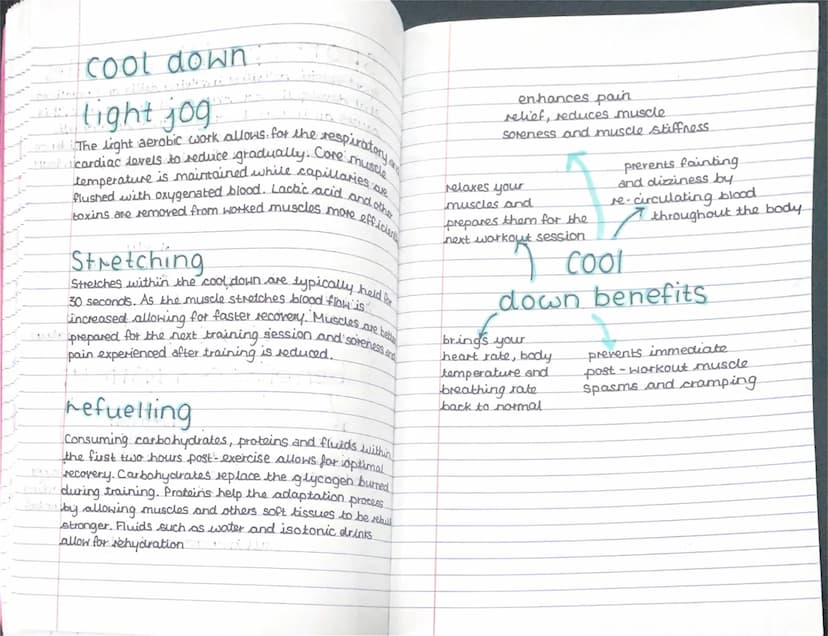 cool down
light jog
The light aerobic work allows for the respiratory and
cardiac levels to reduce gradually. Core muscle
temperature is maintained while capillaries are
flushed with oxygenated blood. Lactic acid and other
toxins are removed from worked muscles more
Stretching
Stretches within the cool down are typically held for
30 seconds. As the muscle stretches blood flow is
increased allowing for faster recovery. Muscles are
prepared for the next training session and soreness and
pain experienced after training is reduced.
refuelling
Consuming carbohydrates, proteins and fluids within
the first two hours post-exercise allows for optimal
recovery. Carbohydrates replace the glycogen burned
during training. Proteins help the adaptation process
by allowing muscles and others soft tissues to be
stronger. Fluids such as water and isotonic drinks
allow for rehydration
enhances pain
relief, reduces muscle
soreness and muscle stiffness
prevents fainting
and dizziness by
re-circulating blood
throughout the body
relaxes your
muscles and
prepares them for the
next workout session
cool
down benefits
brings your
heart rate, body
temperature and
breathing rate
back to normal
prevents immediate
post-workout muscle
spasms and cramping